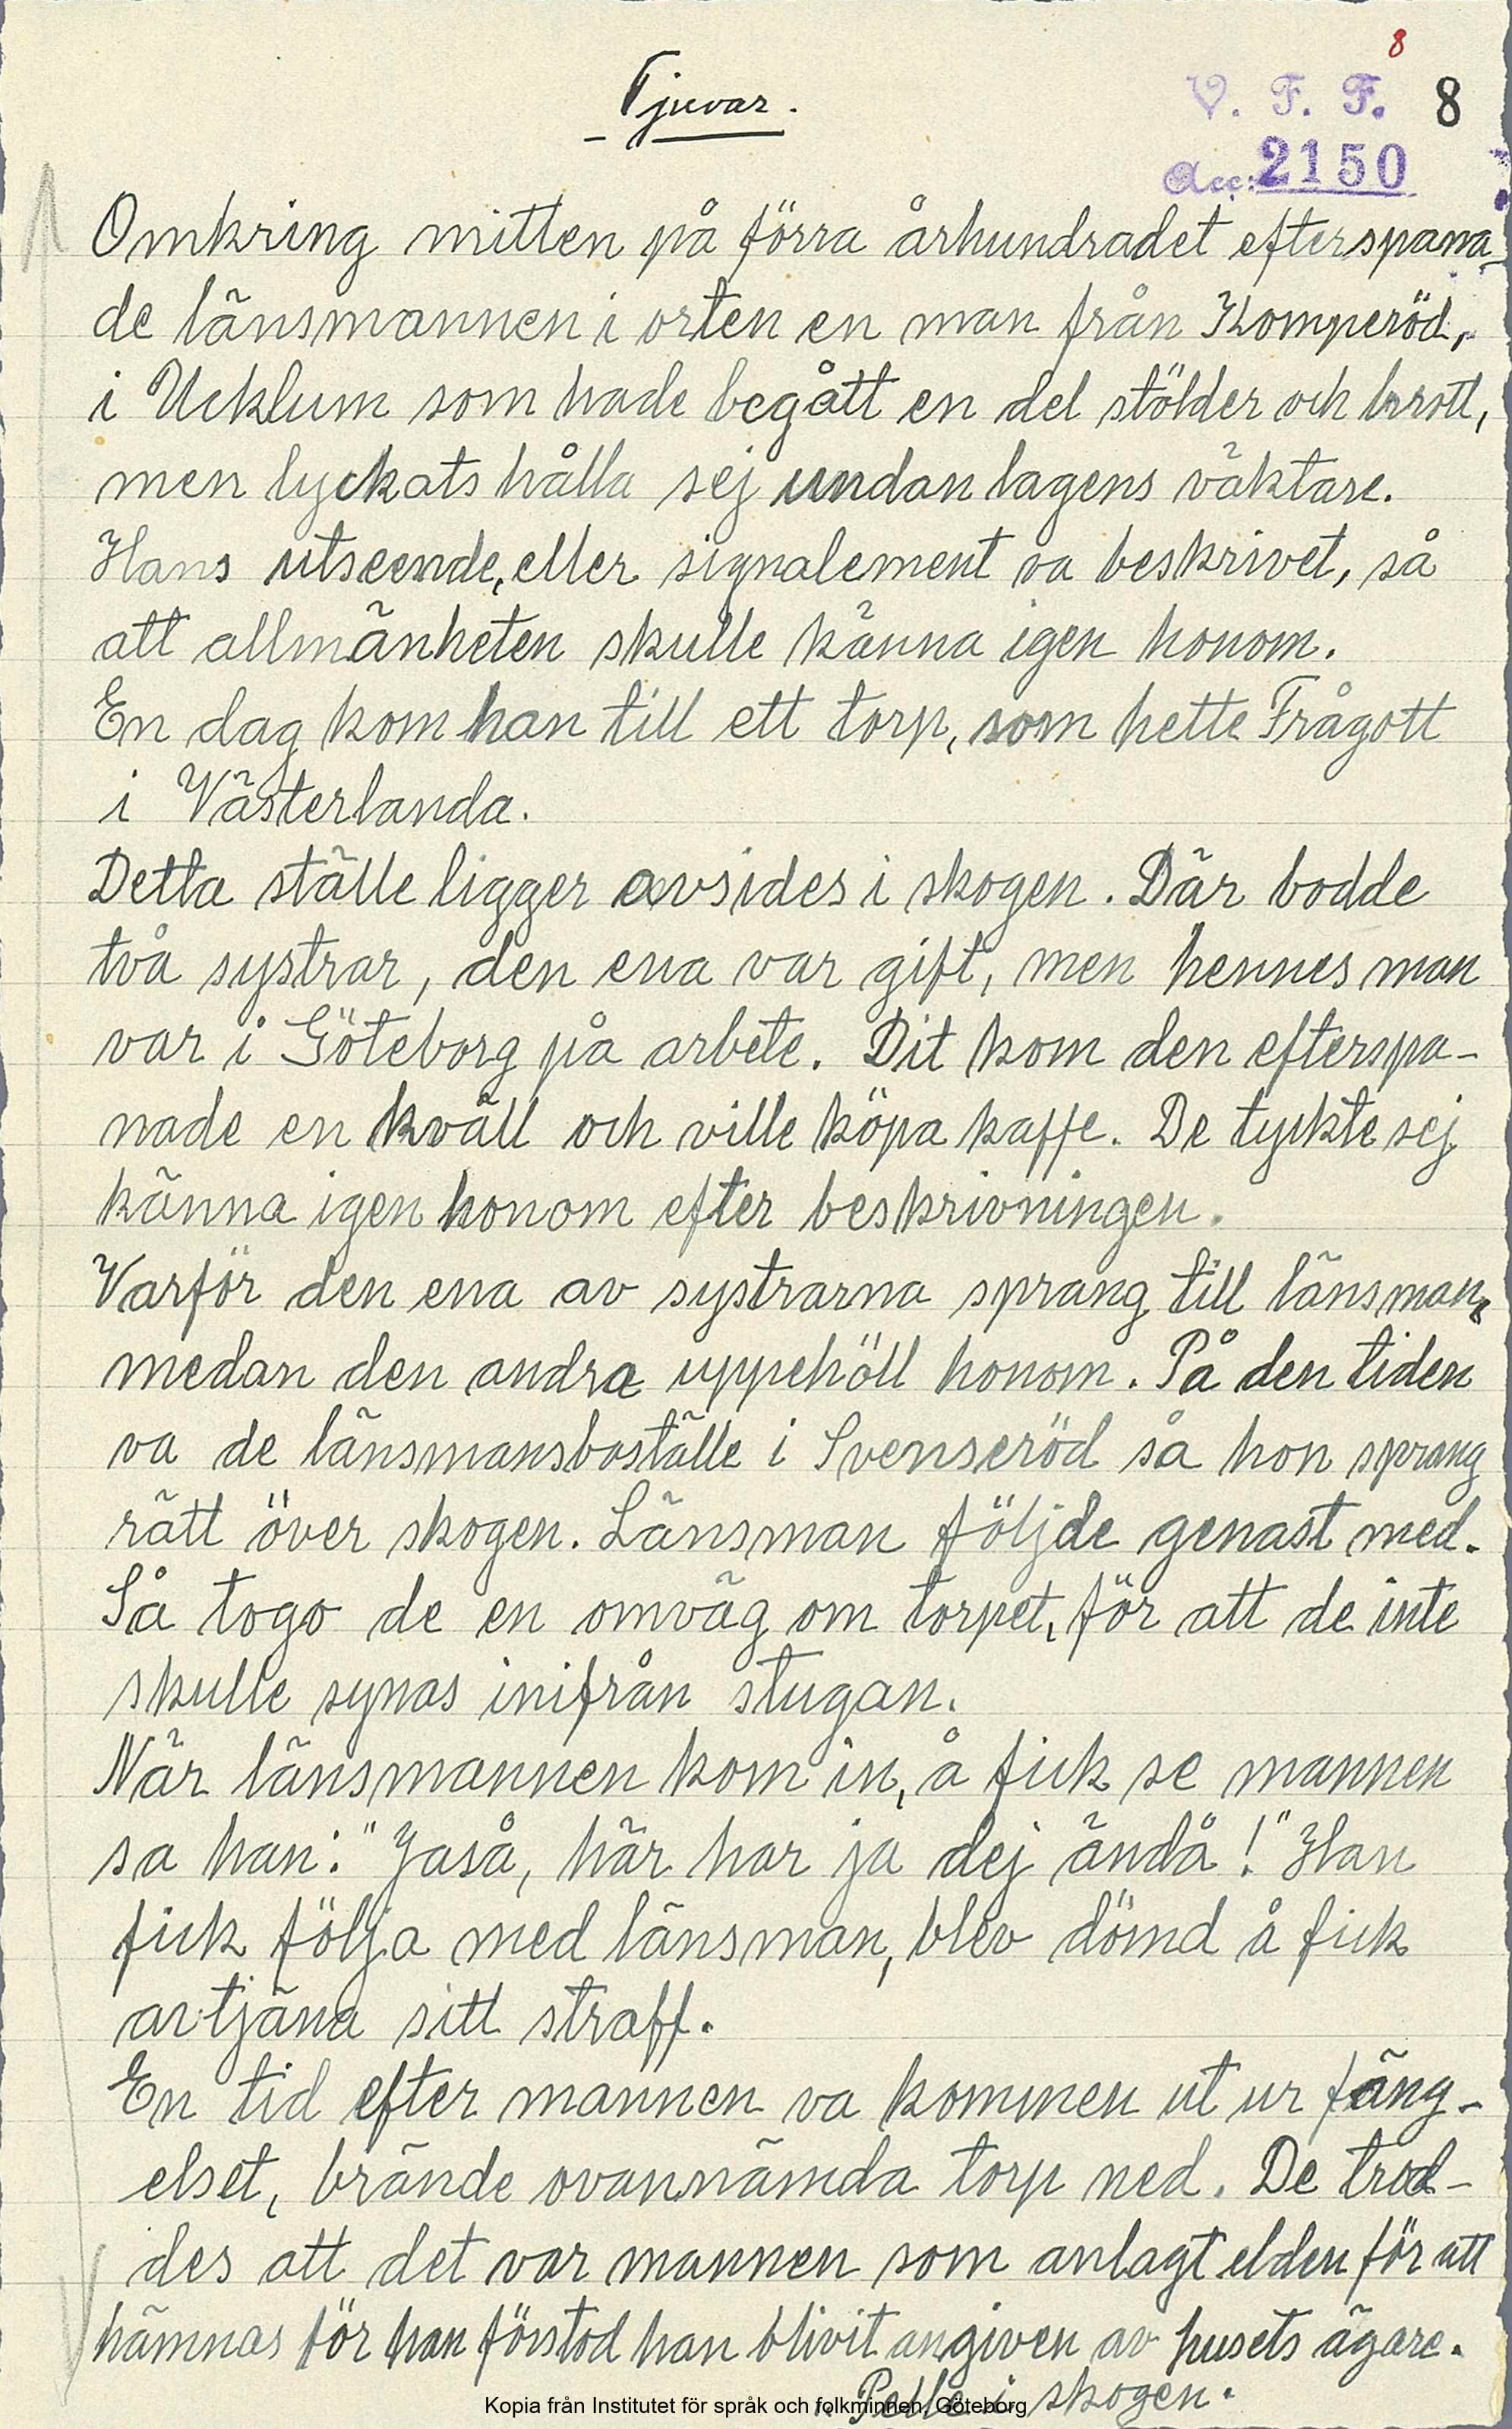 8
Tjuvar.
V. F. F. 8
Acc: 2150
Omkring mitten på förra århundradet efterspana-
de länsmannen i orten en man från Komperöd,
i Ucklum som hade begått en del stölder och brott,
men lyckats hålla sej undan lagens väktare.
Hans utseende, eller signalement va beskrivet, så
att allmänheten skulle känna igen honom.
En dag kom han till ett torp, som hette Frågott
i Västerlanda.
Detta ställe ligger avsides i skogen. Där bodde
två systrar, den ena var gift, men hennes man
var i Göteborg på arbete. Dit kom den efterspa-
nade en kväll och ville köpa kaffe. De tyckte sej
känna igen honom efter beskrivningen.
Varför den ena av systrarna sprang till länsman,
medan den andra uppehöll honom. På den tiden
va de länsmansboställe i Svenseröd så hon sprang
rätt över skogen. Länsman följde genast med.
Så togo de en omväg om torpet, för att de inte
skulle synas inifrån stugan.
När länsmannen kom in, å fick se mannen
sa han: "Jaså, här har ja dej ändå!" Han
fick följa med länsman, blev dömd å fick
avtjäna sitt straff.
En tid efter mannen va kommen ut ur fäng-
elset, brände ovannämda torp ned. De trod-
des att det var mannen som anlagt elden för att
hämnas för han förstod han blivit angiven av husets ägare.
Pelle i skogen.
Kopia från Institutet för språk och folkminnen, Göteborg